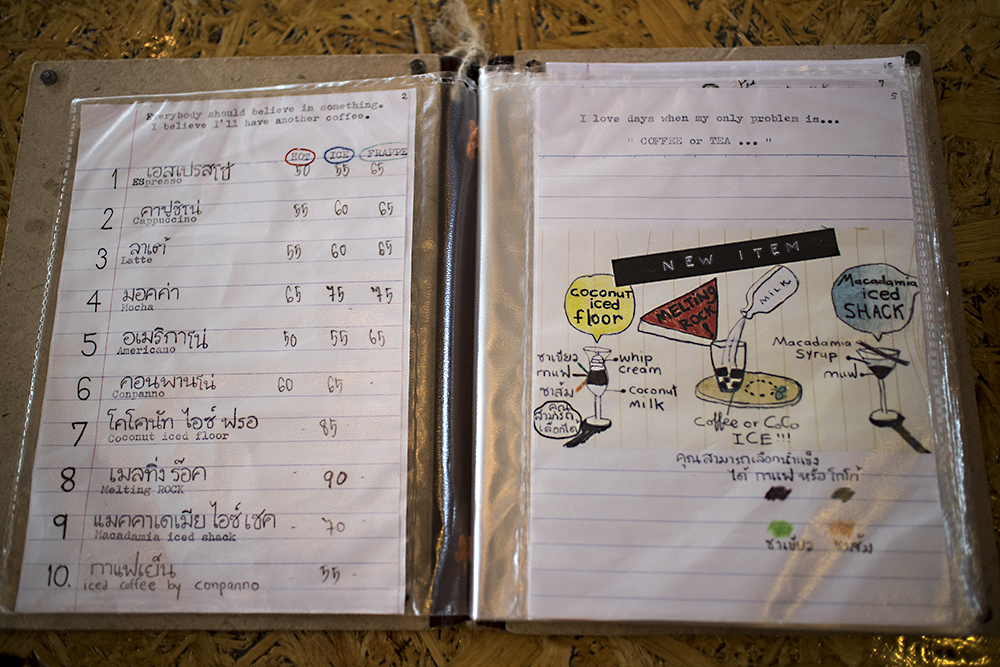 2
Everybody should believe in something.
I believe I'll have another coffee.
HOT ICE FRAPPE
1 เอสเปรสโซ่ 50 55 65
ESpresso
2 คาปูชิโน่ 55 60 65
Cappuccino
3 ลาเต้ 55 60 65
Latte
4 มอคค่า 65 75 75
Mocha
5 อเมริกาโน่ 50 55 65
Americano
6 คอนพานโน่ 60 65 -
Conpanno
7 โคโคนัท ไอซ์ ฟรอ 85 -
Coconut iced floor
8 เมลทิ่ง ร๊อค 90
Melting ROCK
9 แมคคาเดเมีย ไอซ์ เชค - 70 -
Macadamia iced shack
10. กาแฟเย็น 55 -
iced coffee by conpanno
15
7
5
I love days when my only problem is...
" COFFEE or TEA ... "
NEW ITEM
coconut
iced
floor
MELTING
ROCK!
MILK
Macadamia
iced
SHACK
ชาเขียว
กาแฟ
ชาส้ม
whip
cream
coconut
milk
คุณ
สามารถ
เลือกได้
Macadamia
Syrup
กาแฟ
Coffee or CoCo
ICE!!!
คุณสามารถเลือกน้ำแข็ง
ได้ กาแฟ หรือ โกโก้
ชาเขียว ชาส้ม